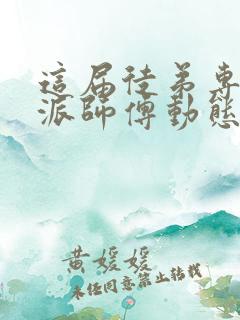 這届徒弟專
派師傅動態
黄媛媛
未经同意禁止转载